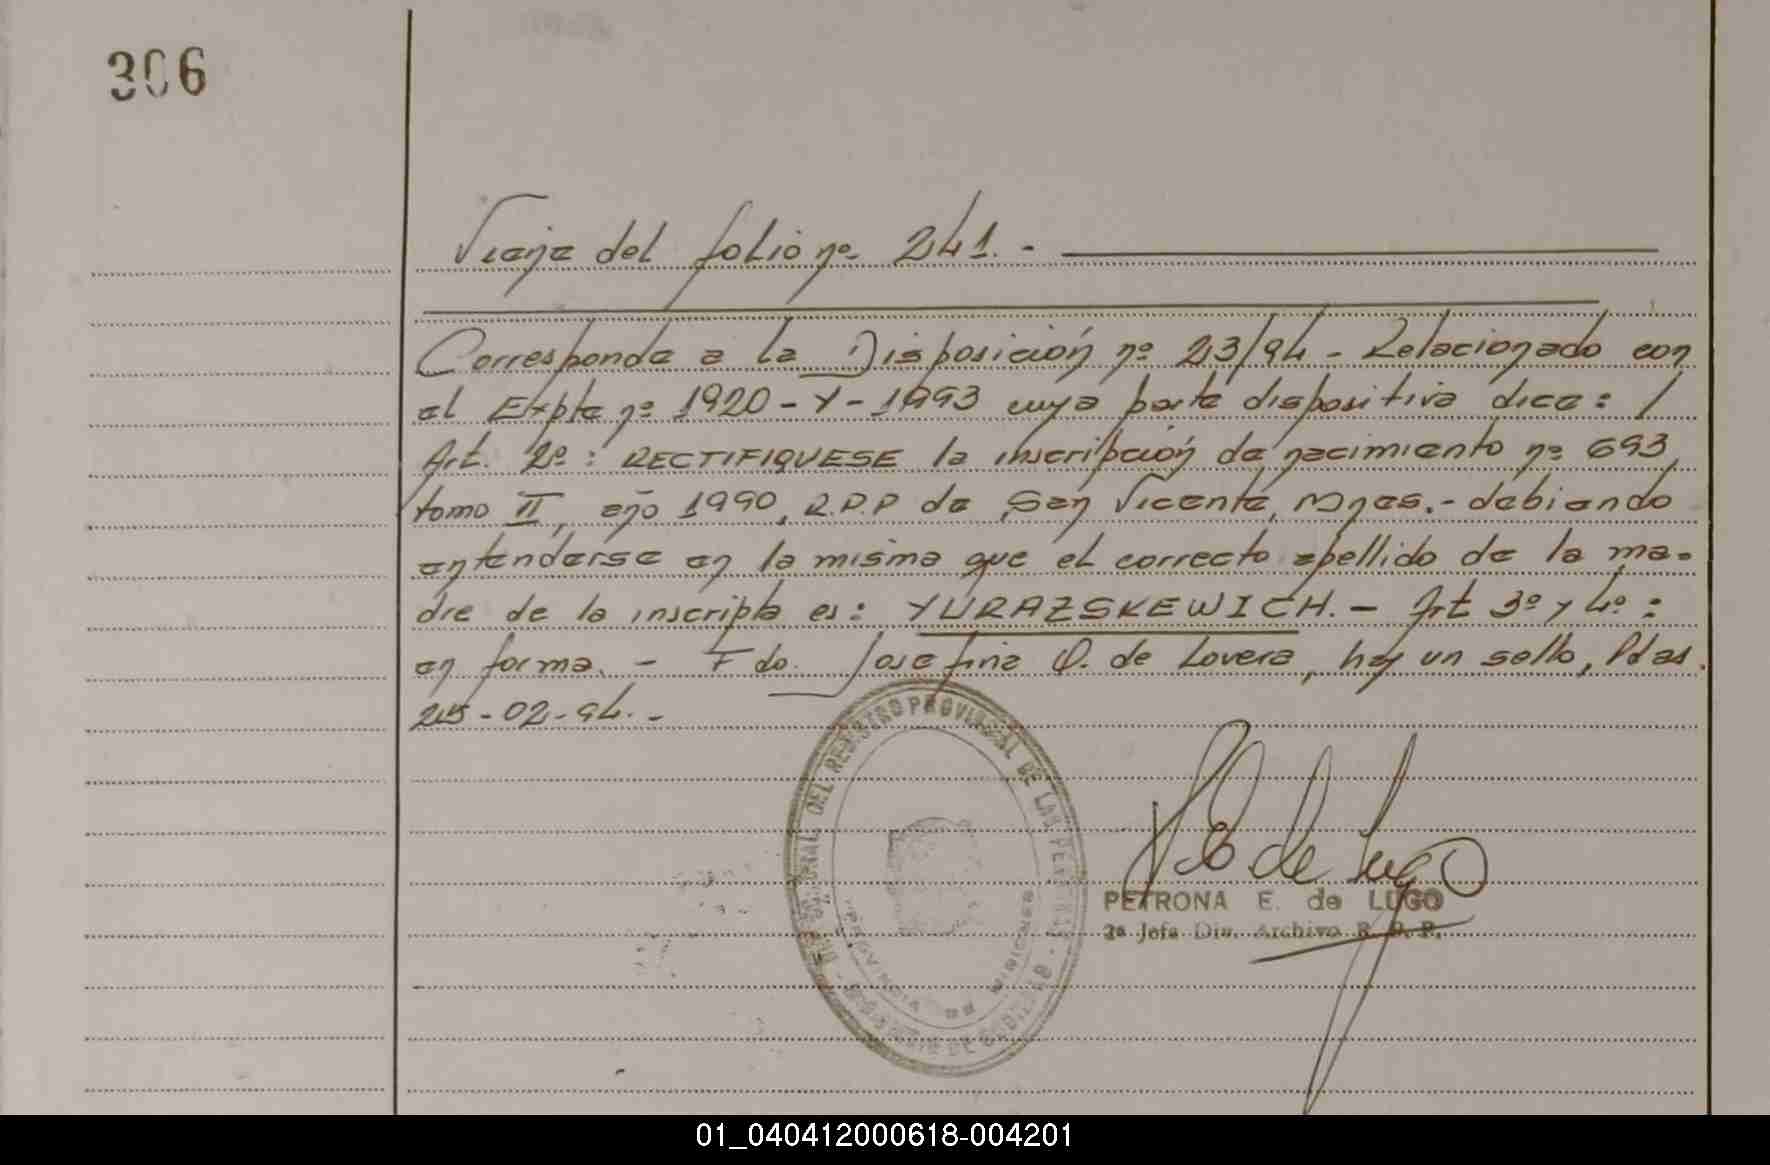 306
Viene del folio nº 241.-
Corresponde a la Disposición nº 23/94 - Relacionado con
el Expte nº 1920-Y-1993 cuya parte dispositiva dice: /
Art. 2º: RECTIFIQUESE la inscripción de nacimiento nº 693
tomo II, año 1990, R.P.P de San Vicente, Mnes.- debiendo
entenderse en la misma que el correcto apellido de la ma-
dre de la inscripta es: YURAZSKEWICH. - Art 3º y 4º:
en forma. - Fdo. Josefina Q. de Lovera, hay un sello, Pdas.
25-02-94.-
DEL REGISTRO PROVINCIAL DE LAS PERSONAS
PROVINCIA DE MISIONES
MINISTERIO DE GOBIERNO
P E de Lugo
PETRONA E. de LUGO
2ª Jefa Div. Archivo R. P. P.
01_040412000618-004201